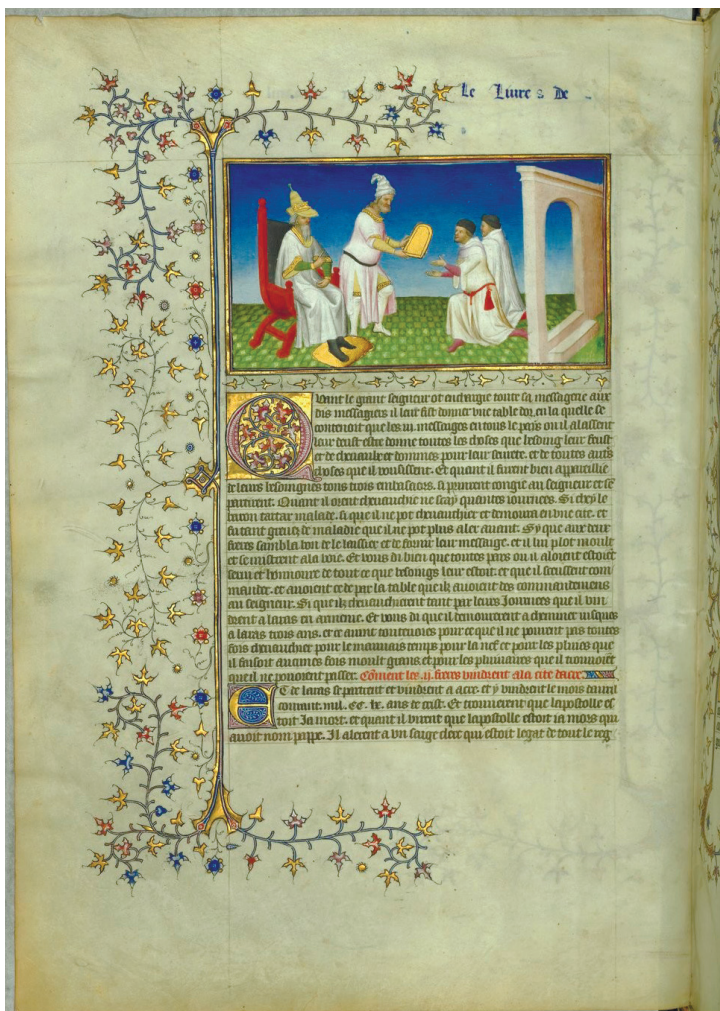 Le Liure s De
Uant le grant seigneur ot enchargie toute sa messagerie aux
dis messagiers il leur fist donner vne table dor, en la quelle se
contenoit que les .iii. messages en tous le pays ou il alassent
leur deust estre donne toutes les choses que besoing leur feust
et de cheuaulx et dommes pour leur seurete. et de toutes autres
choses que il vousissent. Et quant il furent bien appareillie
de leurs besoingnes tous trois embasadors. si prinrent congie au seigneur et se
partirent. Quant il orent cheuauchie ne scay quantes iournees. Si chey le
baron tartar malade. si que il ne pot cheuauchier et demoura en vne cite. et
fu tant greuez de maladie que il ne pot plus aler auant. Sy que aux deux
freres sambla bon de le laissier et de fournir leur message. et il lui plot moult
et se mistrent a la voie. Et vous di bien que toutes pars ou il aloient estoient
serui et honnoure de tout ce que besoings leur estoit. et que il sceussent com
mander. et auoient ce de par la table que ilz auoient des commandemens
au seigneur. Si que ilz cheuauchierent tant par leurs Iournees que il vin
drent a laras en armenie. Et vous di que il demourerent a cheminer iusques
a laras trois ans. et ce auint toutesuoies pour ce que il ne pouoient pas toutes
fois cheuauchier pour le mauuais temps pour la nef et pour les pluies que
il faisoit aucunes fois moult grans. et pour les pluuiaires que il trouuoient
que il ne pouoient passer. Cōment les .ii. freres vindrent a la cite dacre.
Et de laras se partirent et vindrent a acre. et y vindrent le mois dauril
courant. mil. CC. lx. ans de crist. Et trouuerent que lapostolle es
toit Ia mort. et quant il virent que lapostolle estoit ia mors qui
auoit nom pappe. Il alerent a vn saige clerc qui estoit legat de tout le reg